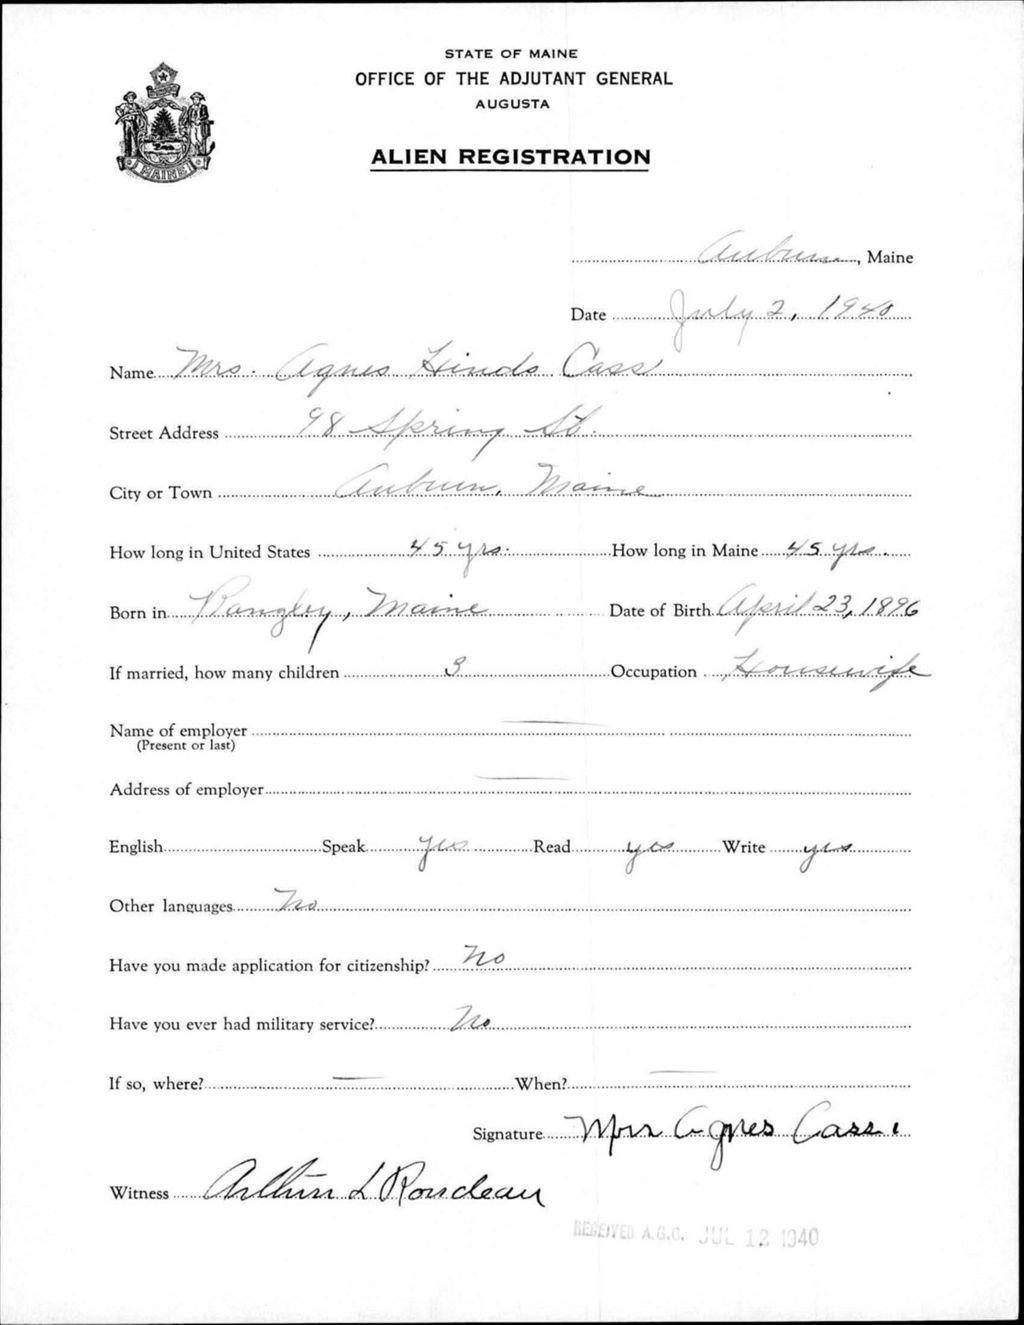 STATE OF MAINE
OFFICE OF THE ADJUTANT GENERAL
AUGUSTA
ALIEN REGISTRATION
MAINE
Auburn, Maine
Date July 2, 1940
Name Mrs. Agnes Hinds Cass
Street Address 98 Spring St.
City or Town Auburn, Maine
How long in United States 45 yrs. How long in Maine 45 yrs.
Born in Rangley, Maine Date of Birth April 23, 1896
If married, how many children 3 Occupation Housewife
Name of employer —
(Present or last)
Address of employer —
English Speak yes Read yes Write yes
Other languages No
Have you made application for citizenship? No
Have you ever had military service? No
If so, where? — When? —
Signature Mrs Agnes Cass.
Witness Arthur L Rondeau
RECEIVED A.G.O. JUL 12 1940